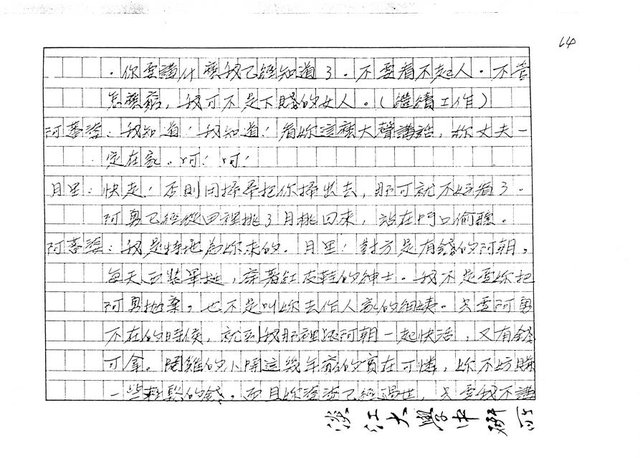 64
．你要講什麼我已經知道了．不要看不起人．不管
怎樣窮，我可不是下賤的女人。(繼續工作)
阿蓉婆：我知道！我知道！看你這麼大聲講話，你丈夫一
定在家。吖！吖！
月里：快走！否則用掃帚把你掃出去，那可就不好看了．
阿勇已經從田裡挑了月桃回來，站在門口偷聽。
阿蓉婆：我是特地為你來的．月里！對方是有錢的阿朝，
每天西裝畢挺，穿著紅皮鞋的紳士。我不是要你把
阿勇拋棄，也不是叫你去作人家的細姨。只要阿勇
不在的時候，就到我那裡還阿朝一起快活，又有錢
可拿。開雜的人開這幾年窮的實在可憐，你不妨賺
一些輕鬆的錢。而且你婆婆已經過世，只要我不講
淡江大學中研所